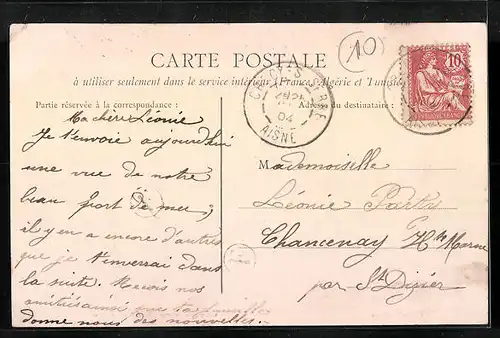 CARTE POSTALE
(10)
à utiliser seulement dans le service intérieur (France, Algérie et Tunisie)
Partie réservée à la correspondance :
Adresse du destinataire :
04
AISNE
10
Ma chère Léonie
Je t'envoie aujourd'hui
une vue de notre
beau fort de mer ;
il y en a encore d'autres
que je t'enverrai dans
la suite. Reçois nos
amitiés ainsi que ta famille
donne nous des nouvelles.
Mademoiselle
Léonie
Chancenay Hte Marne
par St Dizier